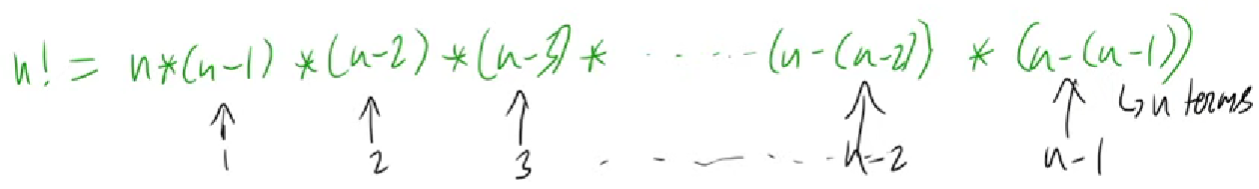 n! = n*(n-1) *(n-2) *(n-3) * ...... (n-(n-2)) * (n-(n-1))
↳ n terms
↑ ↑ ↑ ↑ ↑
1 2 3 ...... n-2 n-1